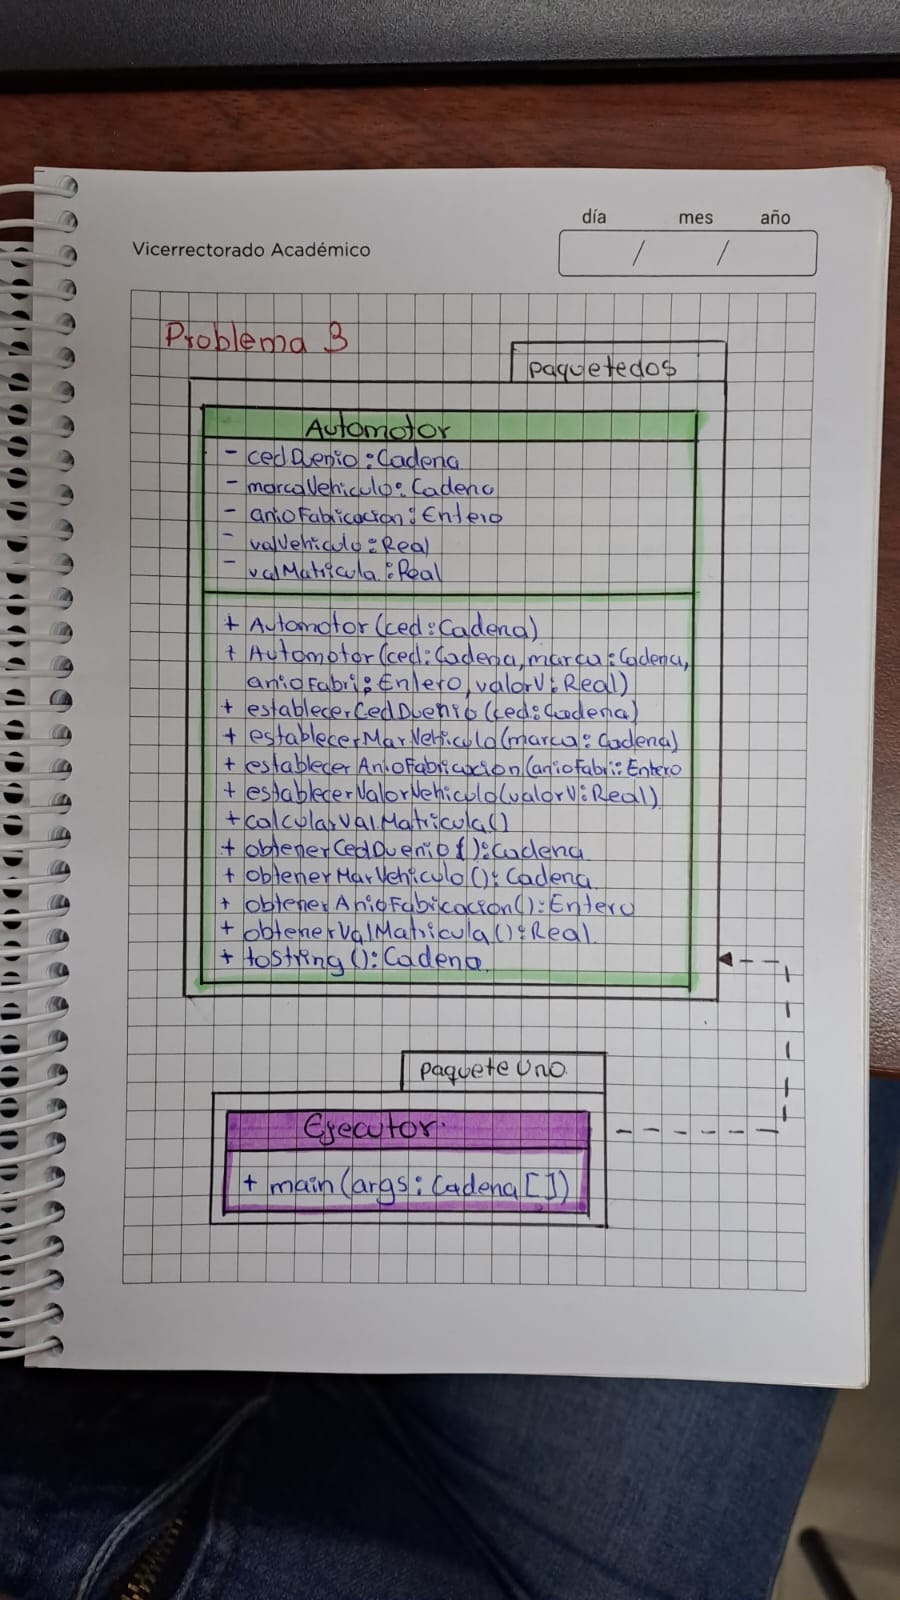 día mes año
Vicerrectorado Académico
/ /
Problema 3
paquetedos
Automotor
- cedDuenio : Cadena
- marcaVehiculo : Cadena
- anioFabricacion : Entero
- valVehiculo : Real
- valMatricula : Real
+ Automotor (ced : Cadena)
+ Automotor (ced : Cadena, marca : Cadena,
anioFabri : Entero, valorV : Real)
+ establecerCedDuenio (ced : Cadena)
+ establecerMarVehiculo (marca : Cadena)
+ establecerAnioFabricacion (anioFabri : Entero
+ establecerValorVehiculo (valorV : Real)
+ calcularValMatricula ()
+ obtenerCedDuenio () : Cadena
+ obtenerMarVehiculo () : Cadena
+ obtenerAnioFabicacion () : Entero
+ obtenerValMatricula () : Real
+ toString () : Cadena
paqueteUno
Ejecutor
+ main (args : Cadena [])